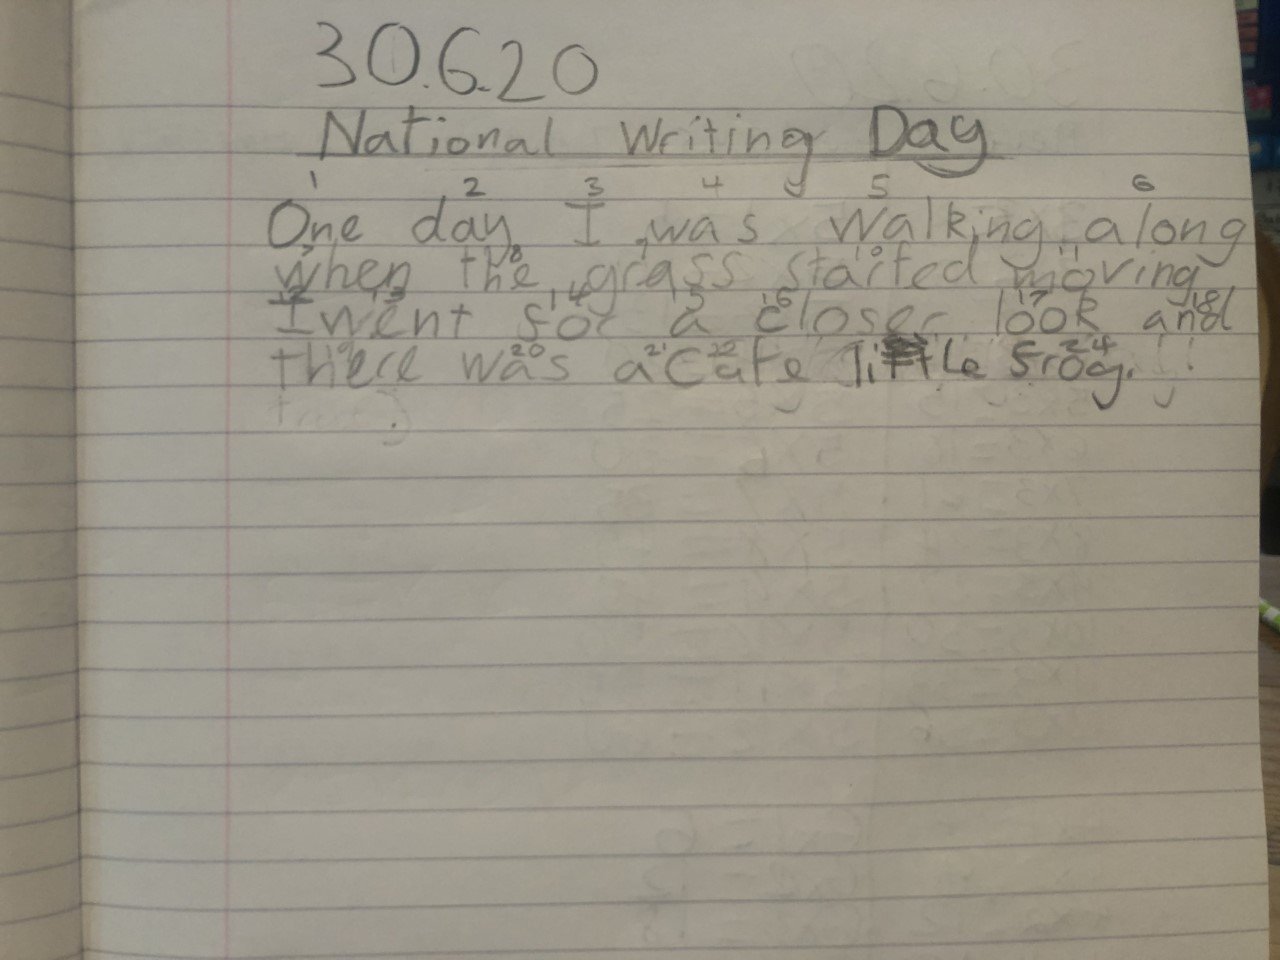 30.6.20
National Writing Day
1 2 3 4 5 6
One day I was walking along
7 8 10 11
when the grass started moving
12 13 14 15 16 17 18
I went for a closer look and
20 21 22 24
there was a cute little frog.